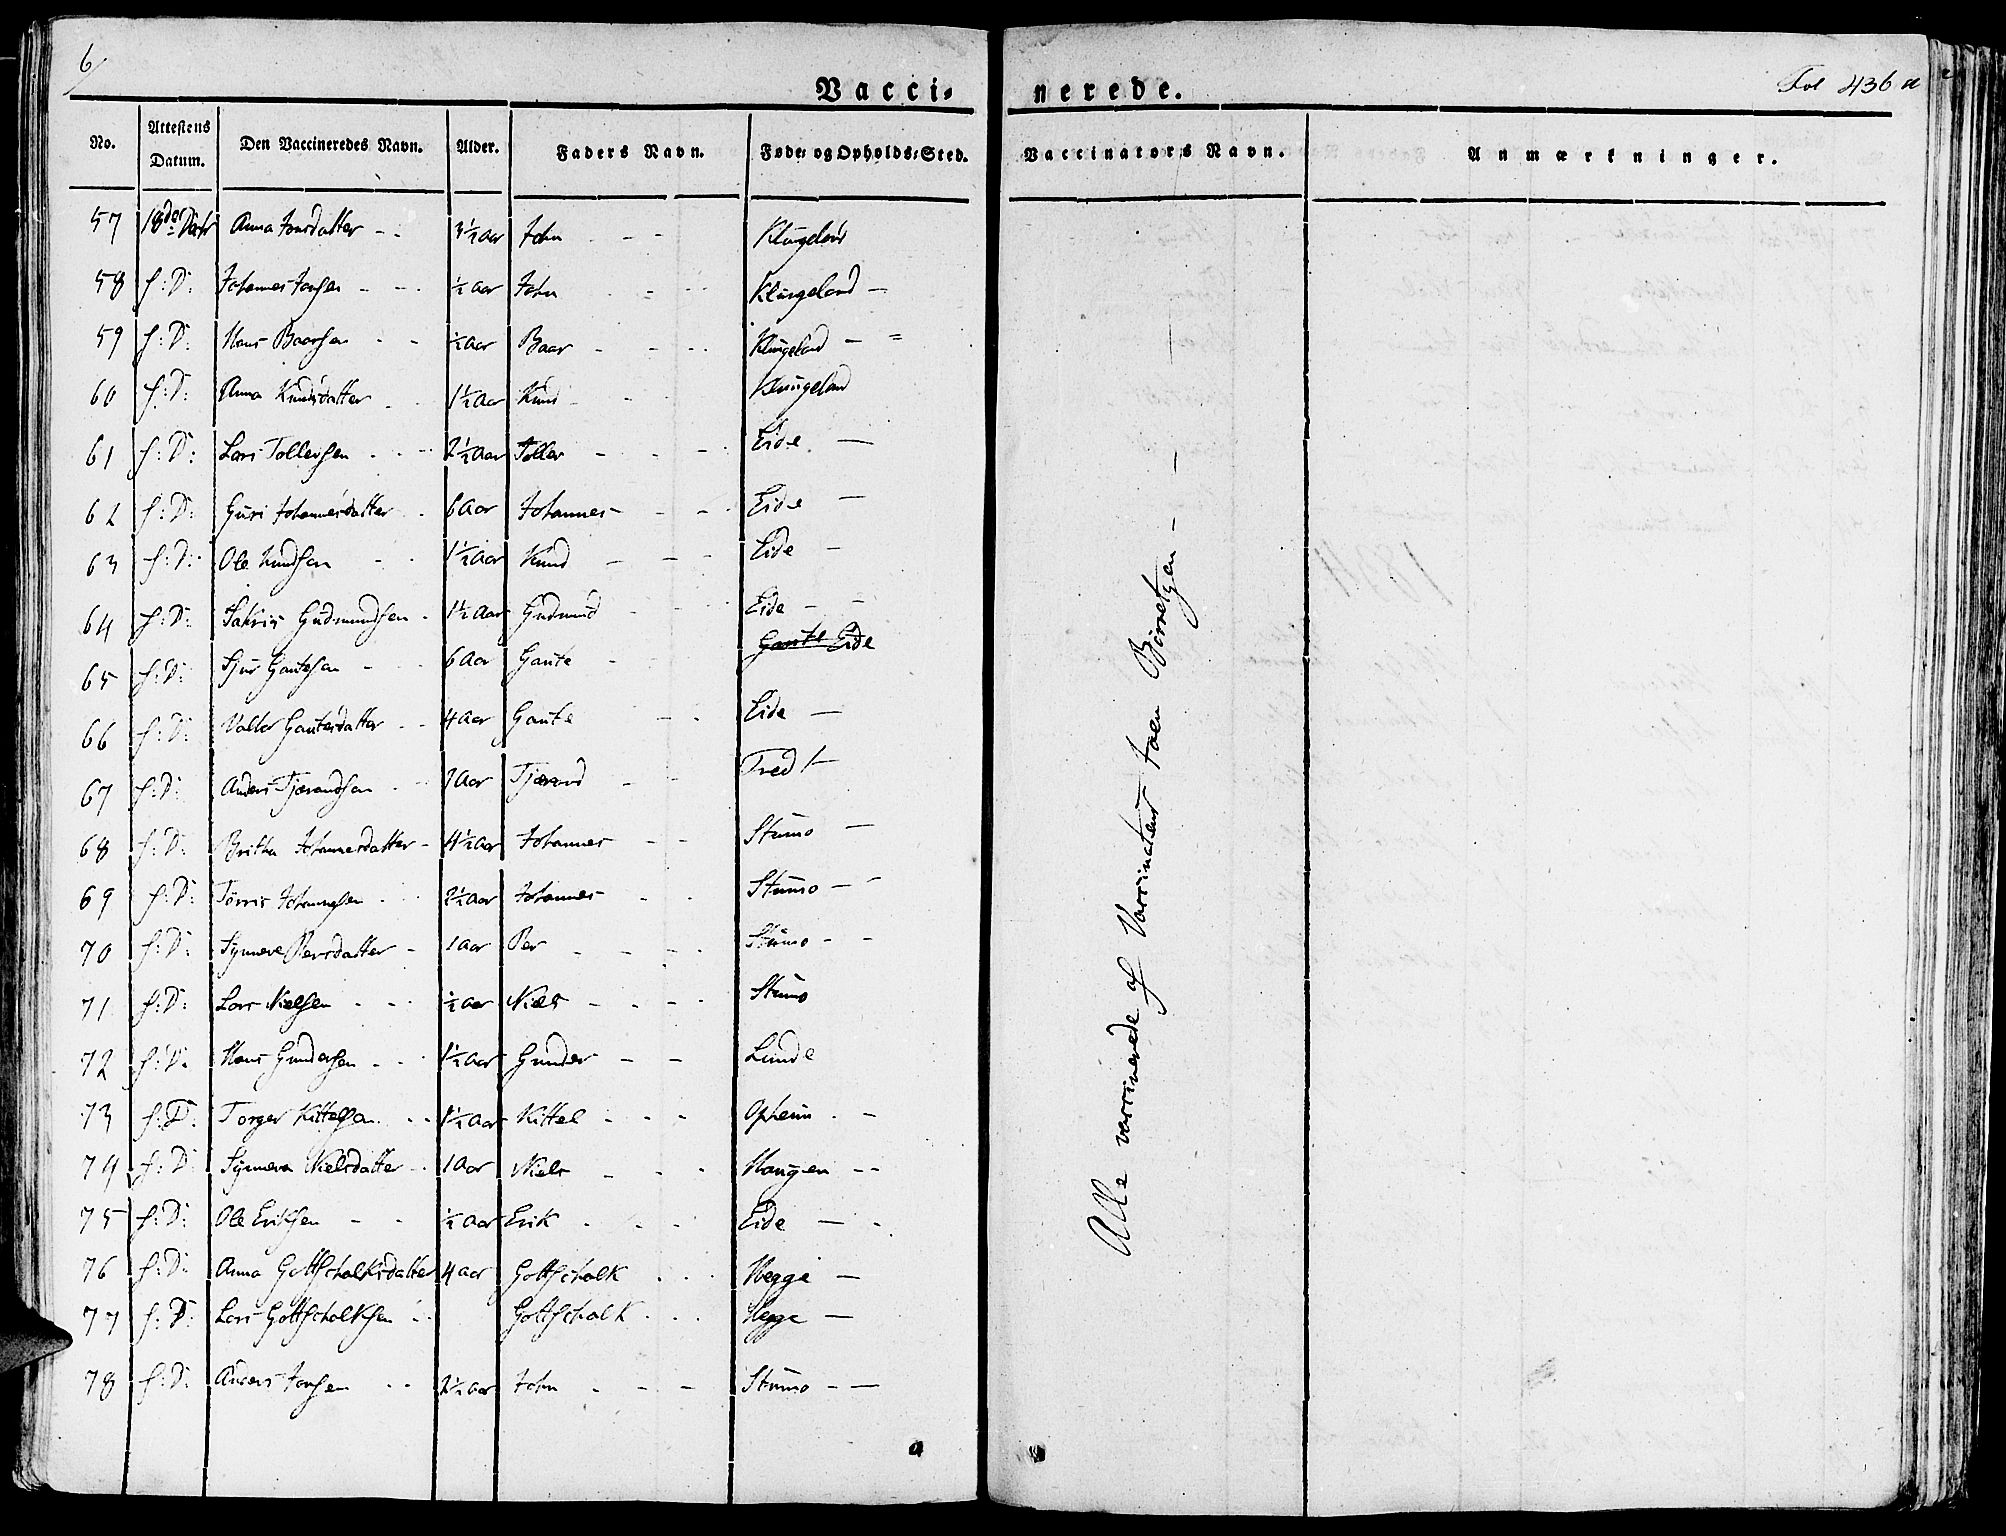 6/
Vacci-
nerede.
Fol 436 a
No. Attestens Datum. Den Vaccineredes Navn. Alder. Faders Navn. Føde- og Opholds-Sted. Vaccinators Navn. Anmærkninger.
57 18de Octr Anna Jonsdatter - - 3½ Aar John - - - Klungeland
58 s: D: Johannes Jonsen - - ½ Aar John - - Klungeland -
59 s: D: Hans Baarsen - - ½ Aar Baar - - - Klungeland - =
60 s: D: Anna Knudsdatter - 1½ Aar Knud - - - Klungeland
61 s: D: Lars Tollersen - - - 2½ Aar Toller - - - Eide -
62 s: D: Guri Johannesdatter - 6 Aar Johannes - - - Eide -
63 s: D: Ole Knudsen - - 1½ Aar Knud - - Eide -
64 s: D: Sakris Gudmundsen - 1½ Aar Gudmund - - Eide - -
65 s: D: Sjur Gautesen - - 6 Aar Gaute - Gaute Eide
66 s: D: Valbor Gautesdatter - - 4 Aar Gaute - - Eide -
67 s: D: Anders Tjerandsen - - 1 Aar Tjerand - - Tredt -
68 s: D: Britha Johannesdatter - 4½ Aar Johannes - - Stumo -
69 s: D: Törris Johannesen - - 2½ Aar Johannes - - Stumo - -
70 s: D: Synneve Persdatter - 1 Aar Per - - - Stumo - -
71 s: D: Lars Nielsen - - - ½ Aar Niels - - - Stumo
72 s: D: Hans Gundersen - - 1½ Aar Gunder - - Lunde
73 s: D: Torger Kittelsen - - 1½ Aar Kittel - - - Opheim - -
74 s: D: Synneva Nielsdatter - 1 Aar Niels - - - Haugen - -
75 s: D: Ole Eriksen - - ½ Aar Erik - - - Eide - -
76 s: D: Anna Gottschalksdatter 4 Aar Gottschalk - - - Hegge -
77 s: D: Lars Gottschalksen - - Gottschalk - - - Hegge -
78 s: D: Anders Jonsen - - 2½ Aar John - - - Stumo - -
Alle vaccinerede af Vaccinateur Joen Børretzen - - -